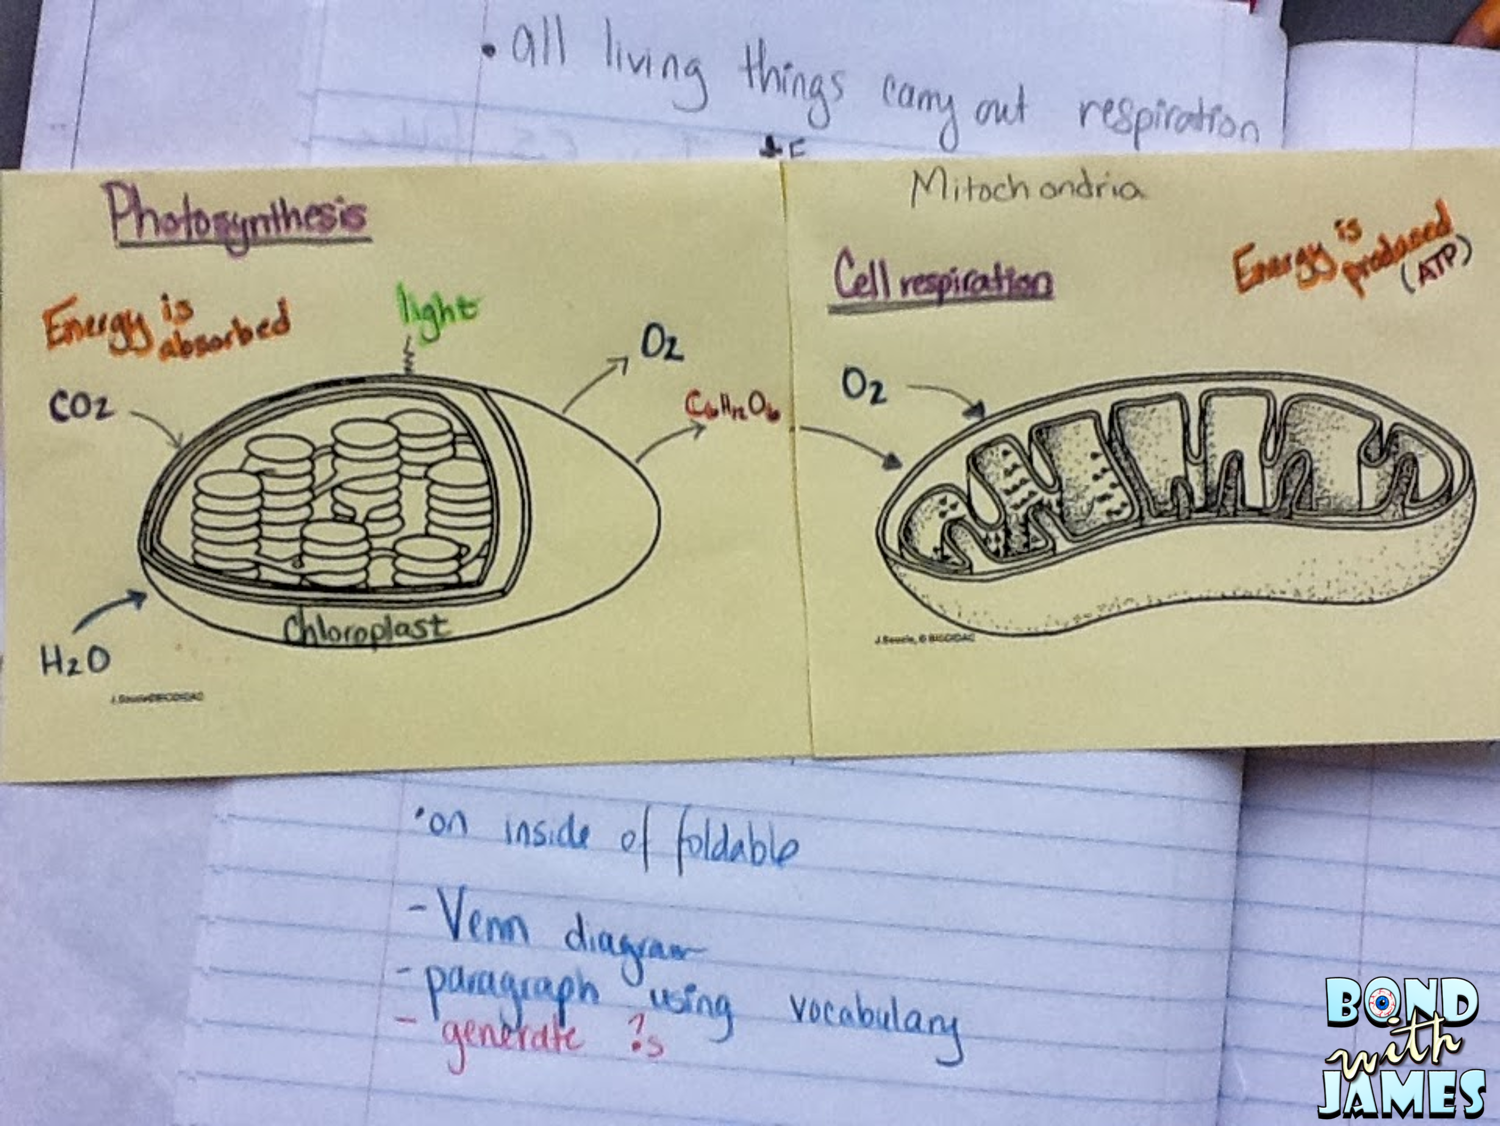 • all living things carry out respiration
Photosynthesis
Energy is
absorbed
light
CO2
O2
C6H12O6
H2O
Chloroplast
Mitochondria
Cell respiration
Energy is
produced
(ATP)
O2
J.Soucie, © BIODIDAC
• on inside of foldable
- Venn diagram
- paragraph using vocabulary
- generate ?s
BOND
with
JAMES